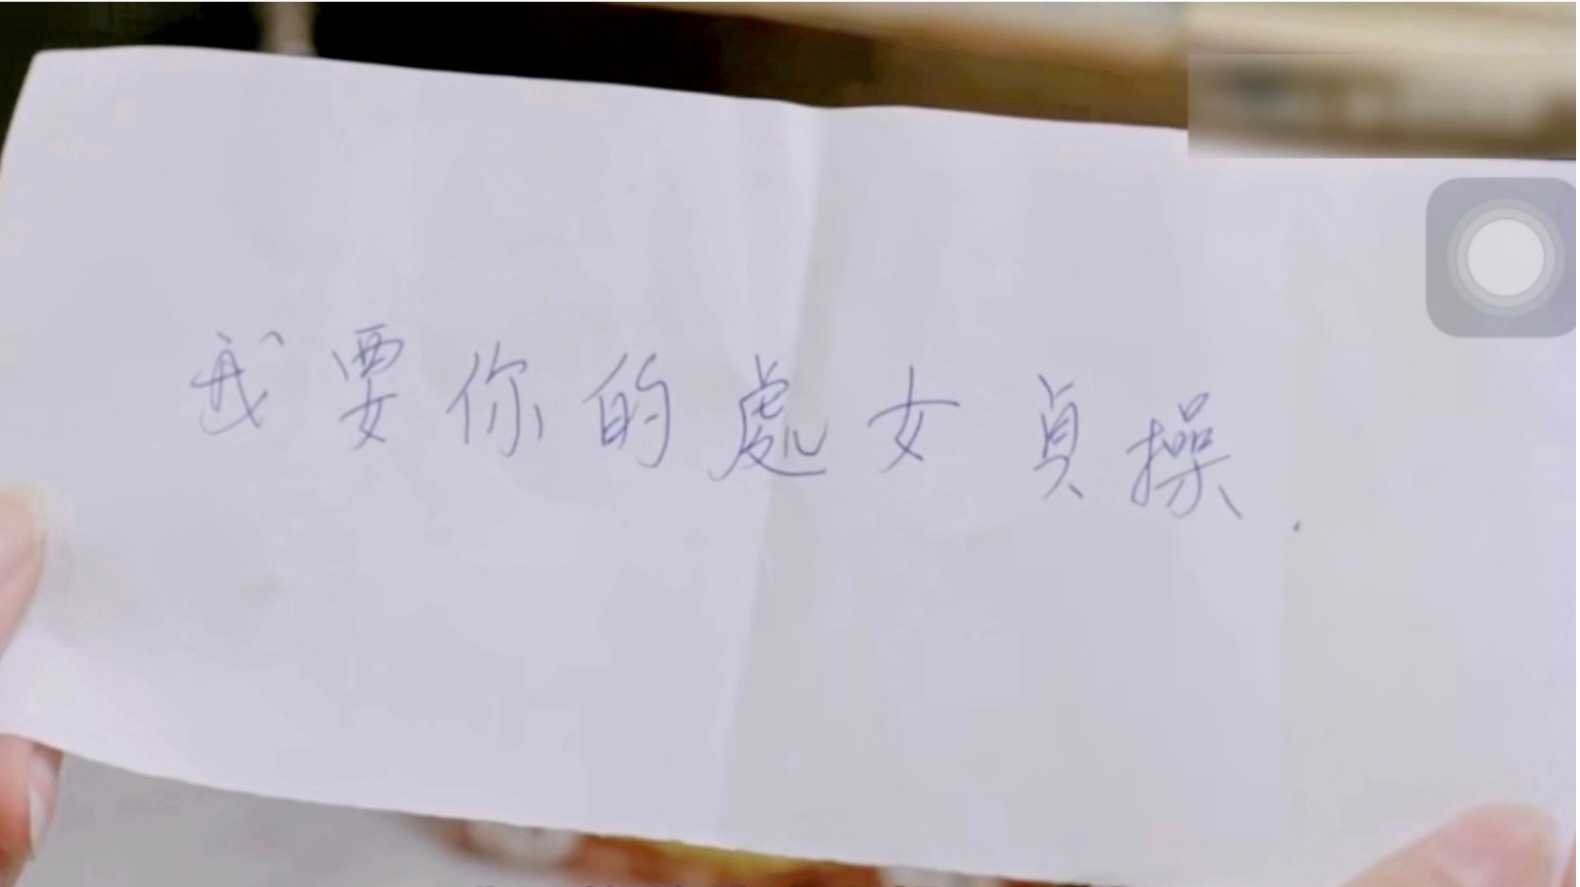 我要你的處女貞操.